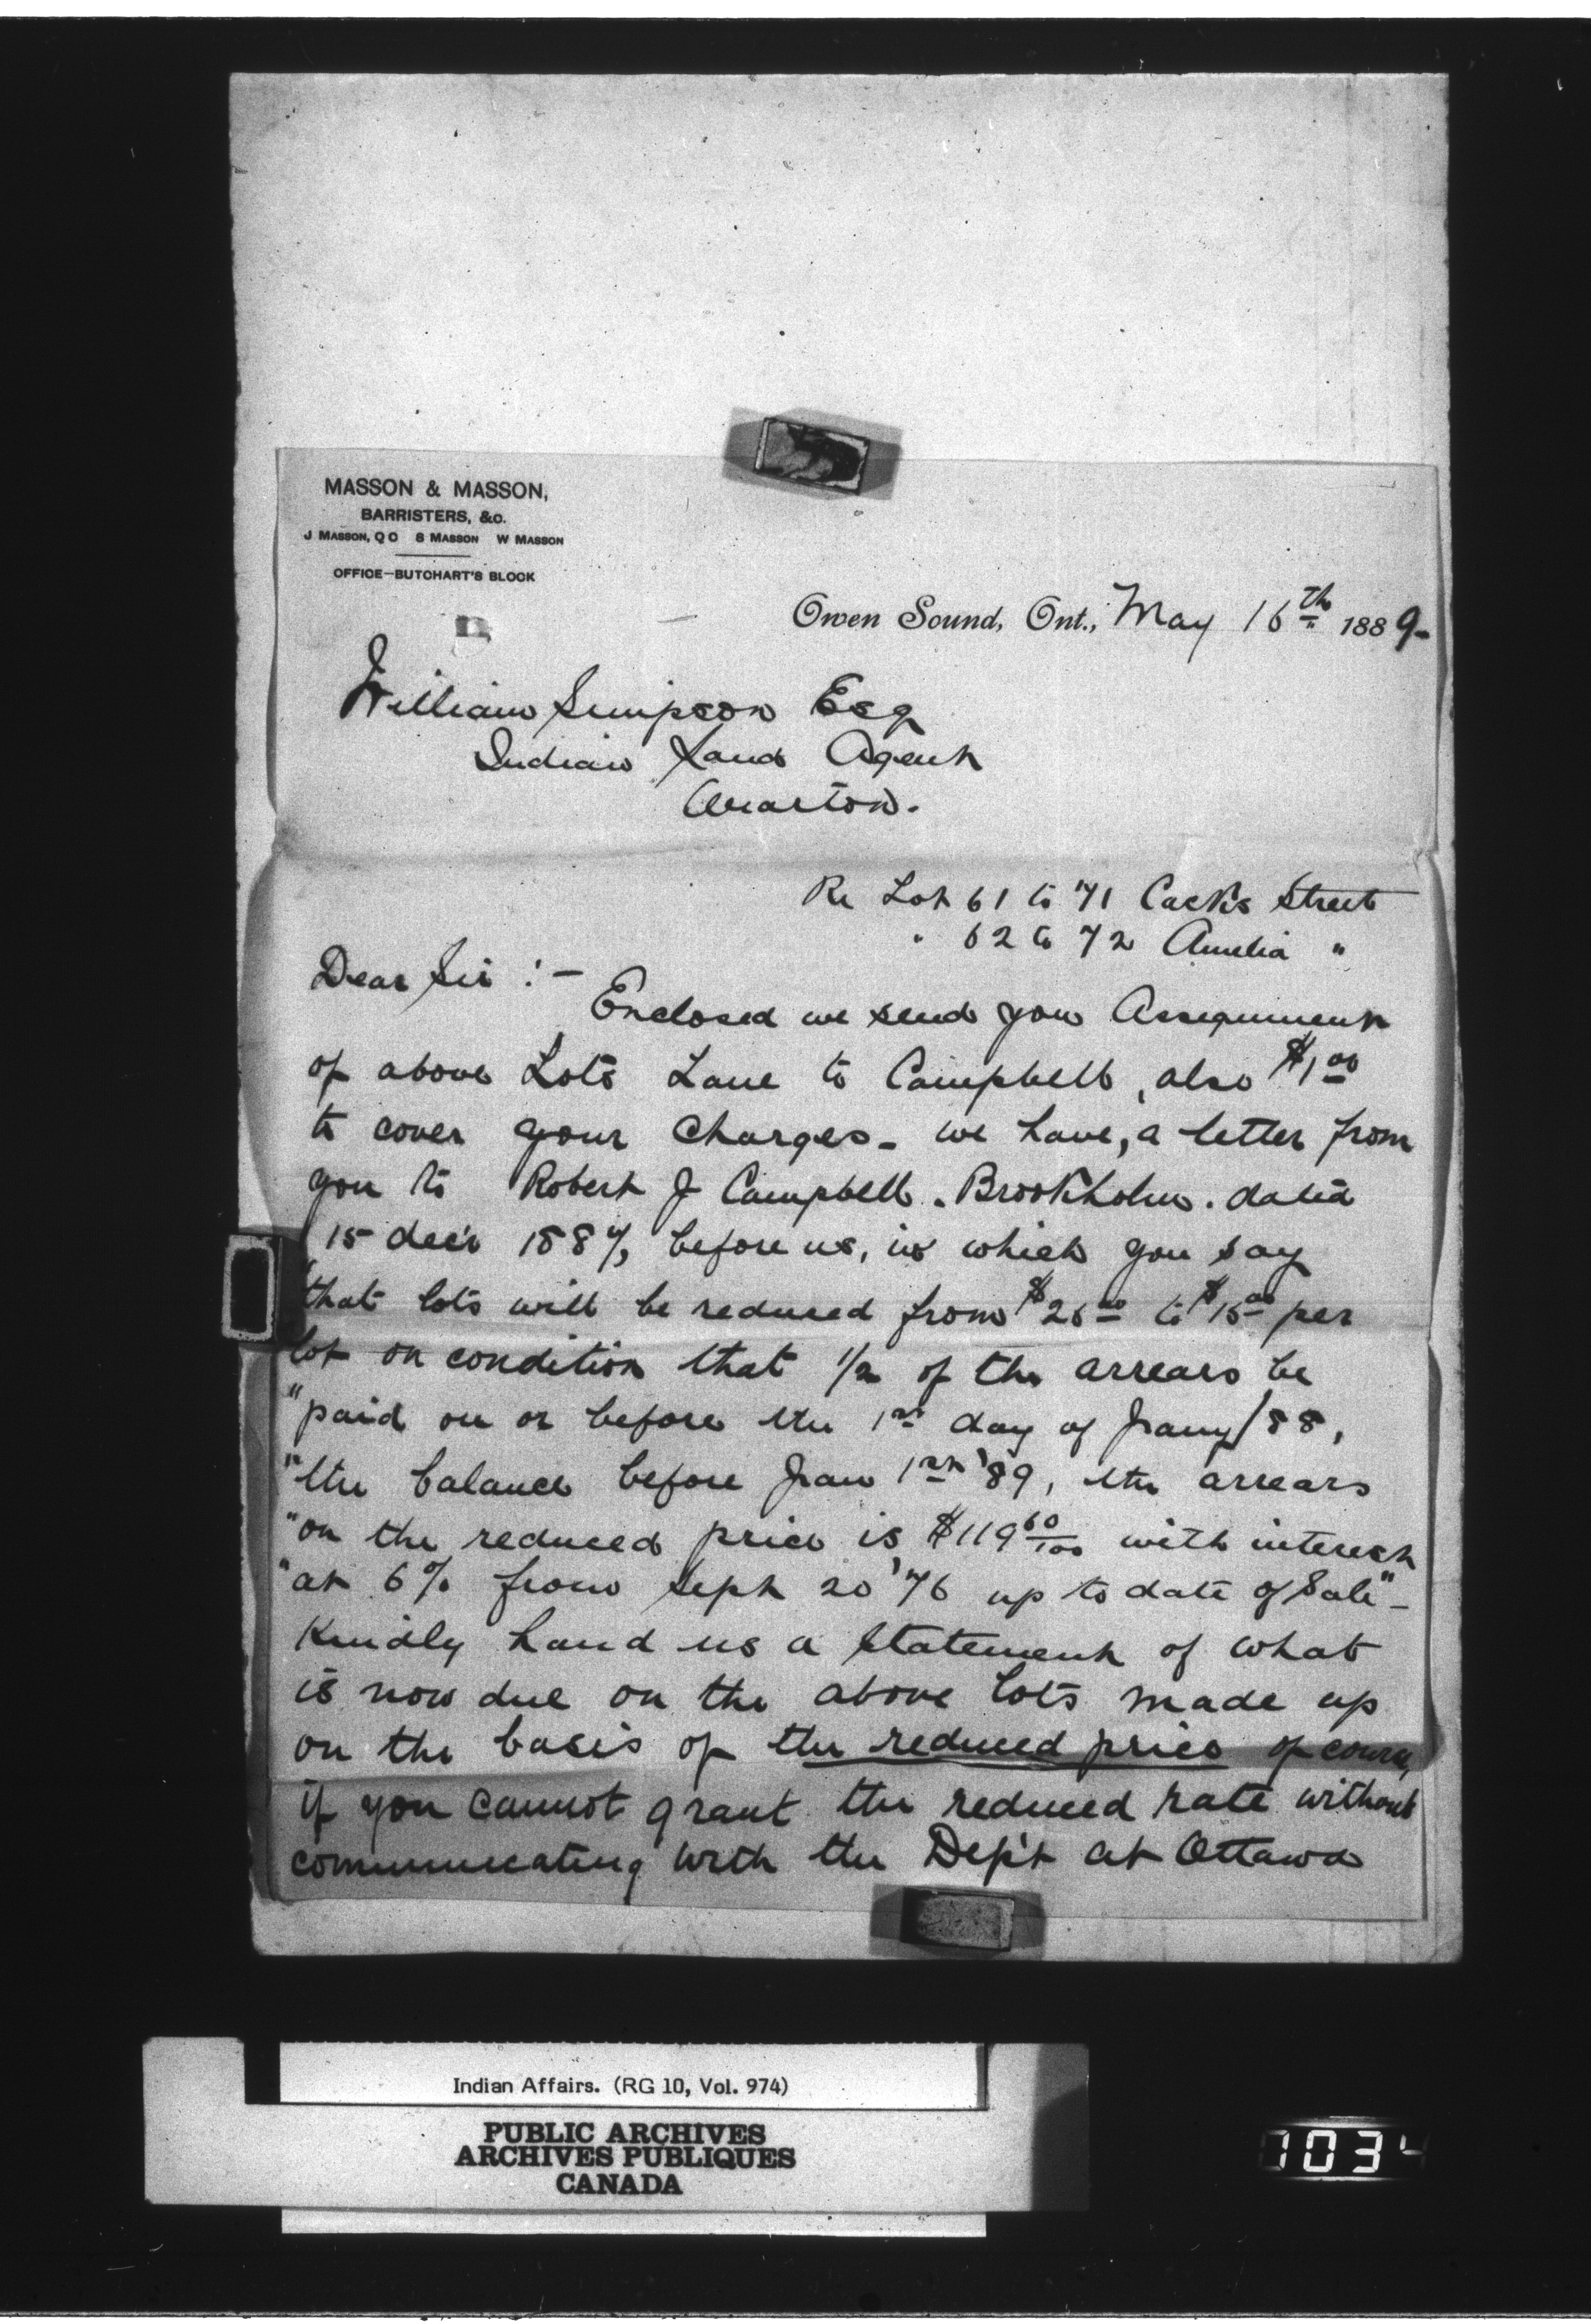 MASSON & MASSON,
BARRISTERS, &c.
J MASSON, Q C S MASSON W MASSON
OFFICE—BUTCHART'S BLOCK
Owen Sound, Ont., May 16th 1889-
William Simpson Esq
Indian Land Agent
Wiarton.
Re Lot 61 to 71 Street
" 62 to 72 Amelia "
Dear Sir :-
Enclosed we send you Assignment
of above Lots Lane to Campbell, also $1 00
to cover your charges- we have, a letter from
you to Robert J Campbell. Brookholm. dated
15 dec'r 1887, before us, in which you say
"that lots will be reduced from $25 00 to $15 00 per
lot on condition that 1/2 of the arrears be
"paid on or before the 1st day of Jany/88,
"the balance before Jan 1st '89, the arrears
"on the reduced price is $119 60/100 with interest
"at 6% from Sept 20 '76 up to date of Sale"-
Kindly hand us a statement of what
is now due on the above lots made up
on the basis of the reduced price of course,
if you cannot grant the reduced rate without
communicating with the Dep't at Ottawa
Indian Affairs. (RG 10, Vol. 974)
PUBLIC ARCHIVES
ARCHIVES PUBLIQUES
CANADA
1034